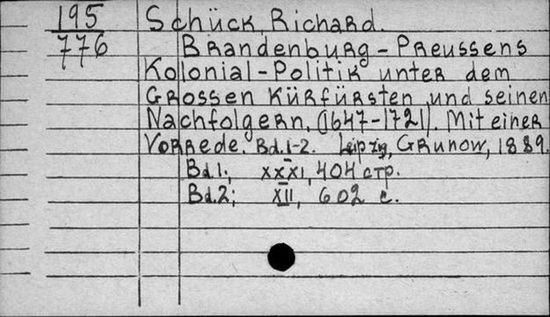 195 Schück, Richard.
776 Brandenburg-Preussens
Kolonial-Politik unter dem
Grossen Kürfürsten und seinen
Nachfolgern, (1647-1721). Mit einer
Vorrede. Bd. 1-2. Leipzig, Grunow, 1889.
Bd. 1; XXXI, 404 стр.
Bd. 2; XII, 602 с.